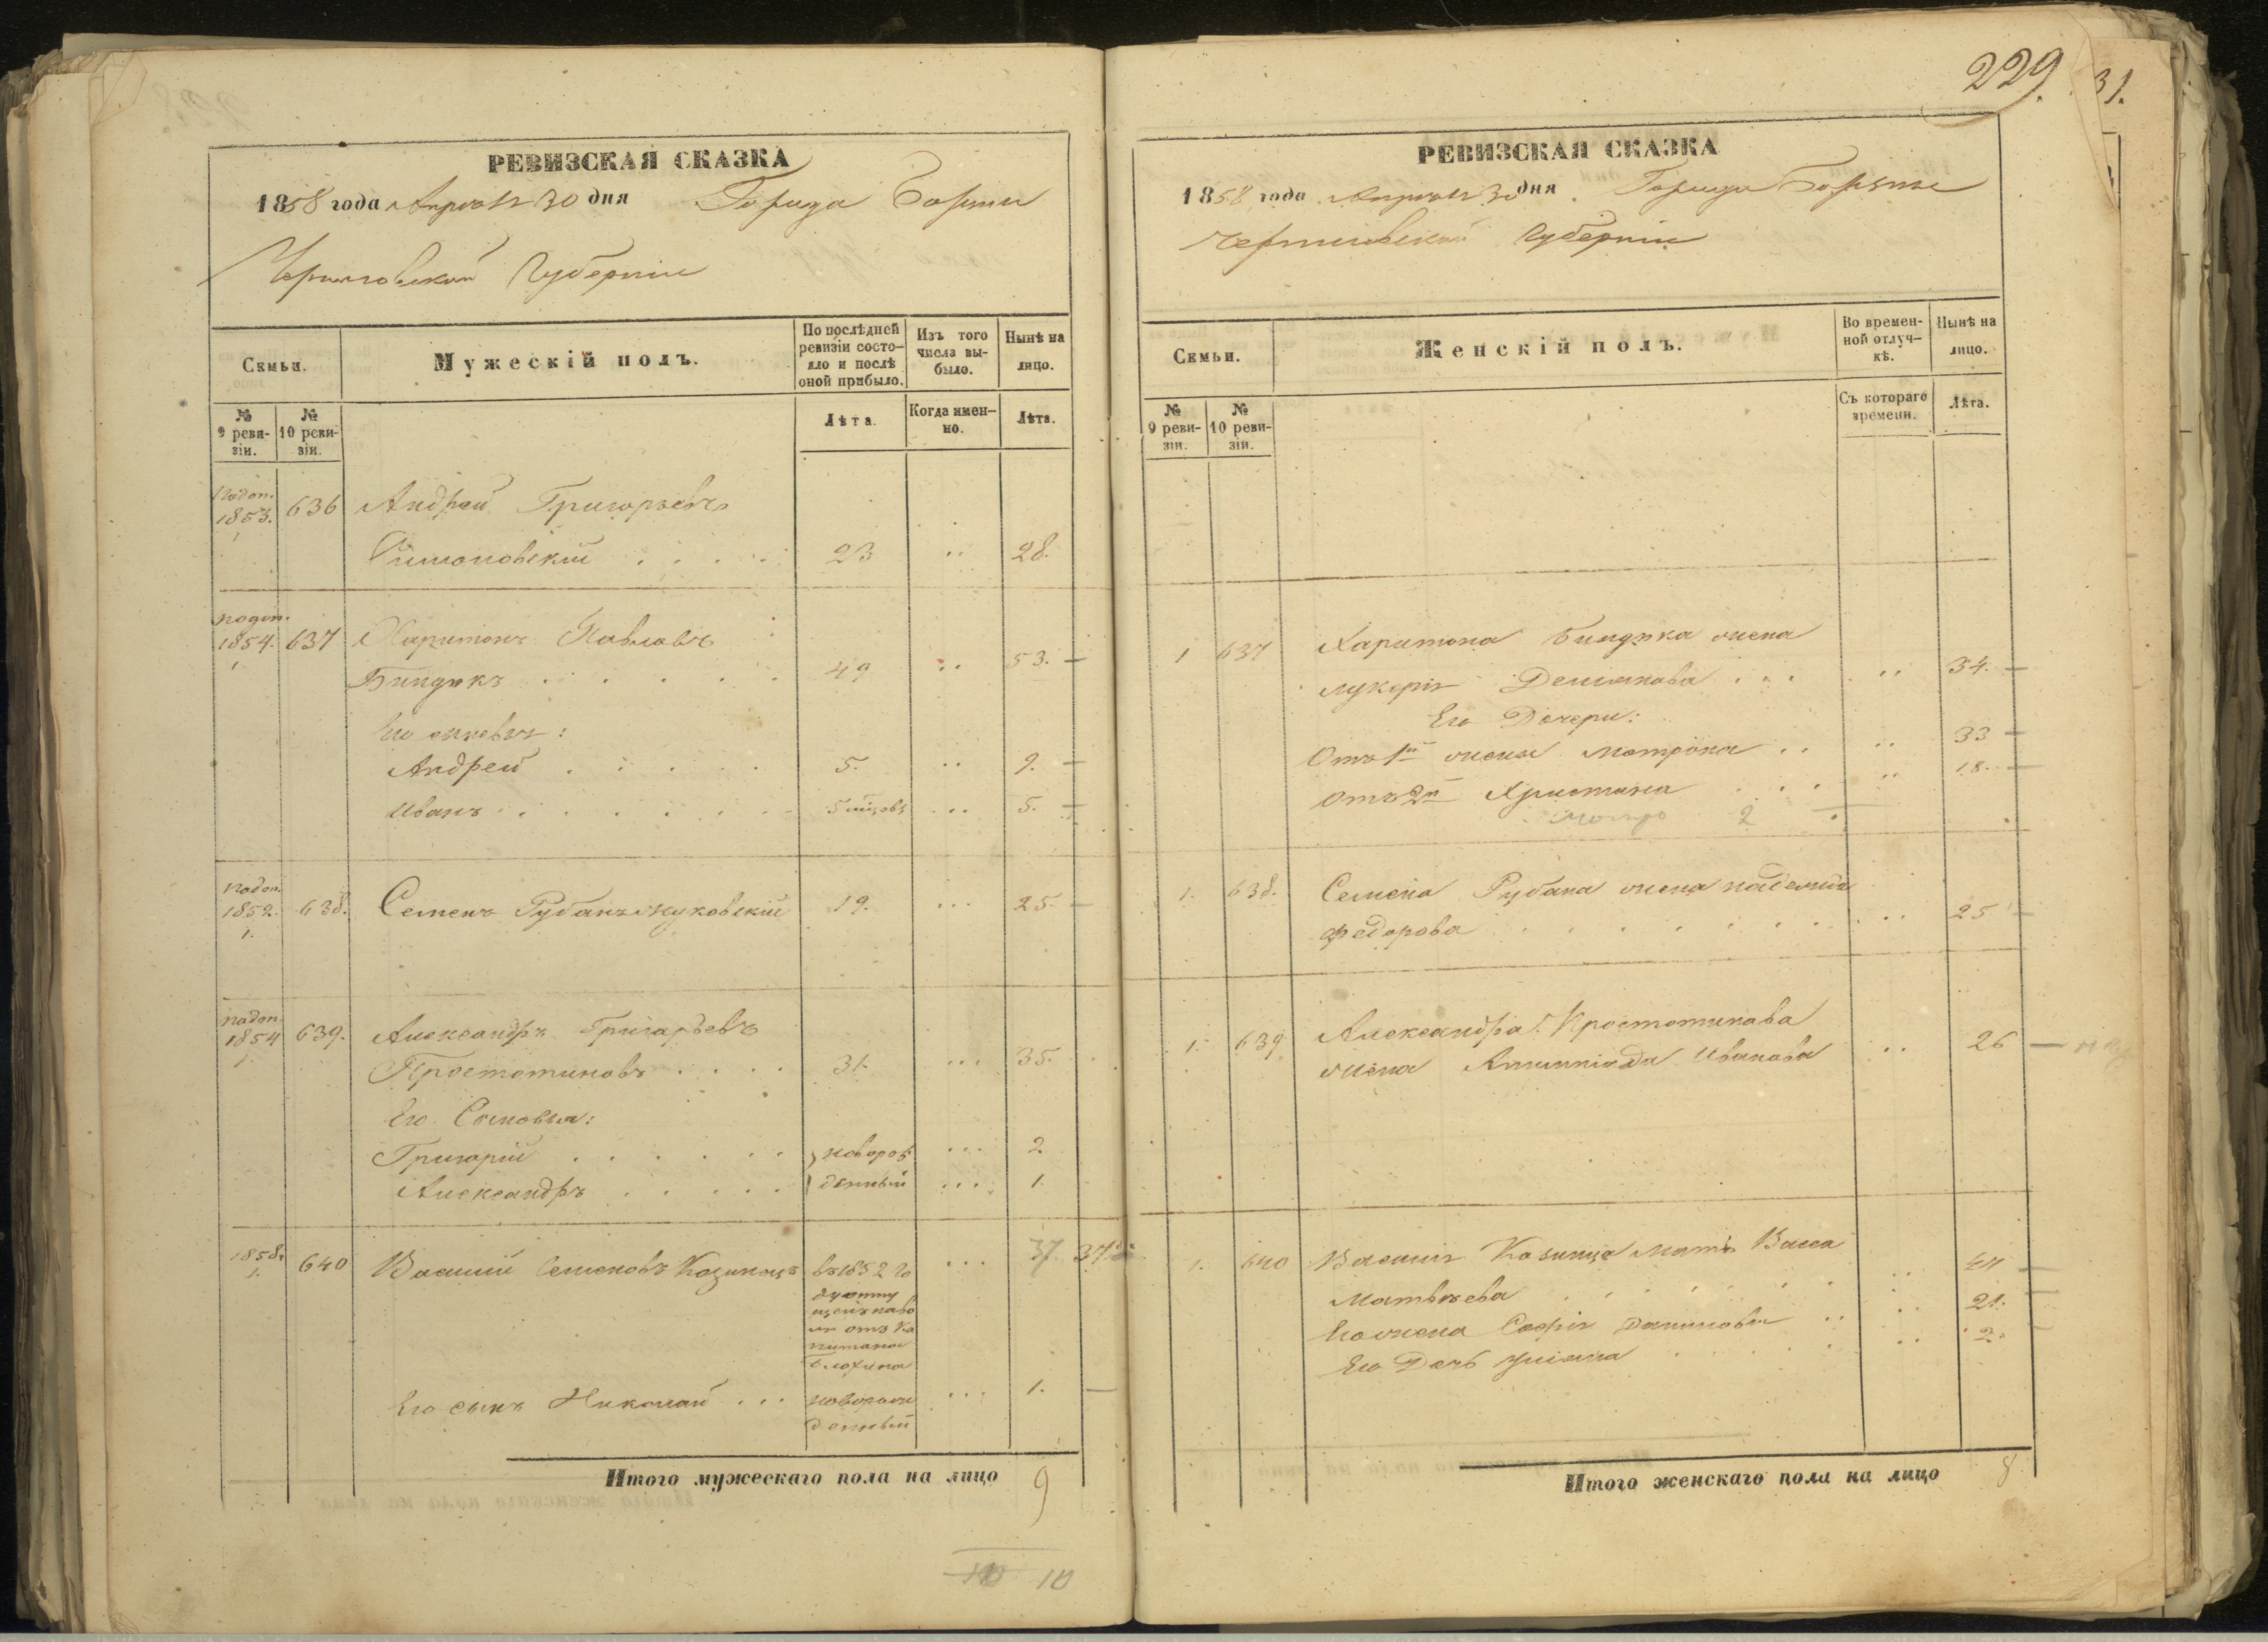 229.
31.
РЕВИЗСКАЯ СКАЗКА
1858 года Апреля 30 дня Города Борзны
Черниговской Губернии
Семьи.
Мужескій полъ.
По послѣдней ревизіи состо-яло и послѣ оной прибыло.
Изъ того числа вы-было.
Нынѣ на лицо.
№ 9 реви-зіи.
№ 10 реви-зіи.
Лѣта.
Когда имен-но.
Лѣта.
1853. 636 Андрей Григорьевъ
23 28.
1854. 637 Харитонъ Павловъ
Биндюкъ 49 53.
Его сыновья:
Андрей 5. 9.
Иванъ 5 мцовъ 5.
1852. 638. Семенъ Рубанъ 19. 25.
1.
1854 639. Александръ Григорьевъ
1. Простотиновъ 31. 35.
Его Сыновья:
Григорій новорож 2.
Александръ денный 1.
1858. 640 Василий Семеновъ Козинецъ въ 1852 го 37 37
1.
ду отпу
щенъ на во
лю отъ Ка
питана
Блохина
Его сынъ Николай новорож 1.
денный
Итого мужескаго пола на лицо 9
10 10
РЕВИЗСКАЯ СКАЗКА
1858 года Апреля 30 дня. Города Борзны
Черниговской Губернии
Семьи.
Женскій полъ.
Во времен-ной отлуч-кѣ.
Нынѣ на лицо.
№ 9 реви-зіи.
№ 10 реви-зіи.
Съ котораго времени.
Лѣта.
1 637 Харитона Биндюка жена
Лукерія Демьянова 34.
Его Дочери:
Отъ 1й жены Матрона 33
Отъ 2й Христина 18.
2
1. 638. Семена Рубана жена
Федорова 25
1. 639 Александра Простотинова
жена Иванова 26
1. 640 Василия Козинца Мать Васса
Матвѣева 47
Его жена Софія Данилова 21.
Его Дочь Уліана 2.
Итого женскаго пола на лицо 8